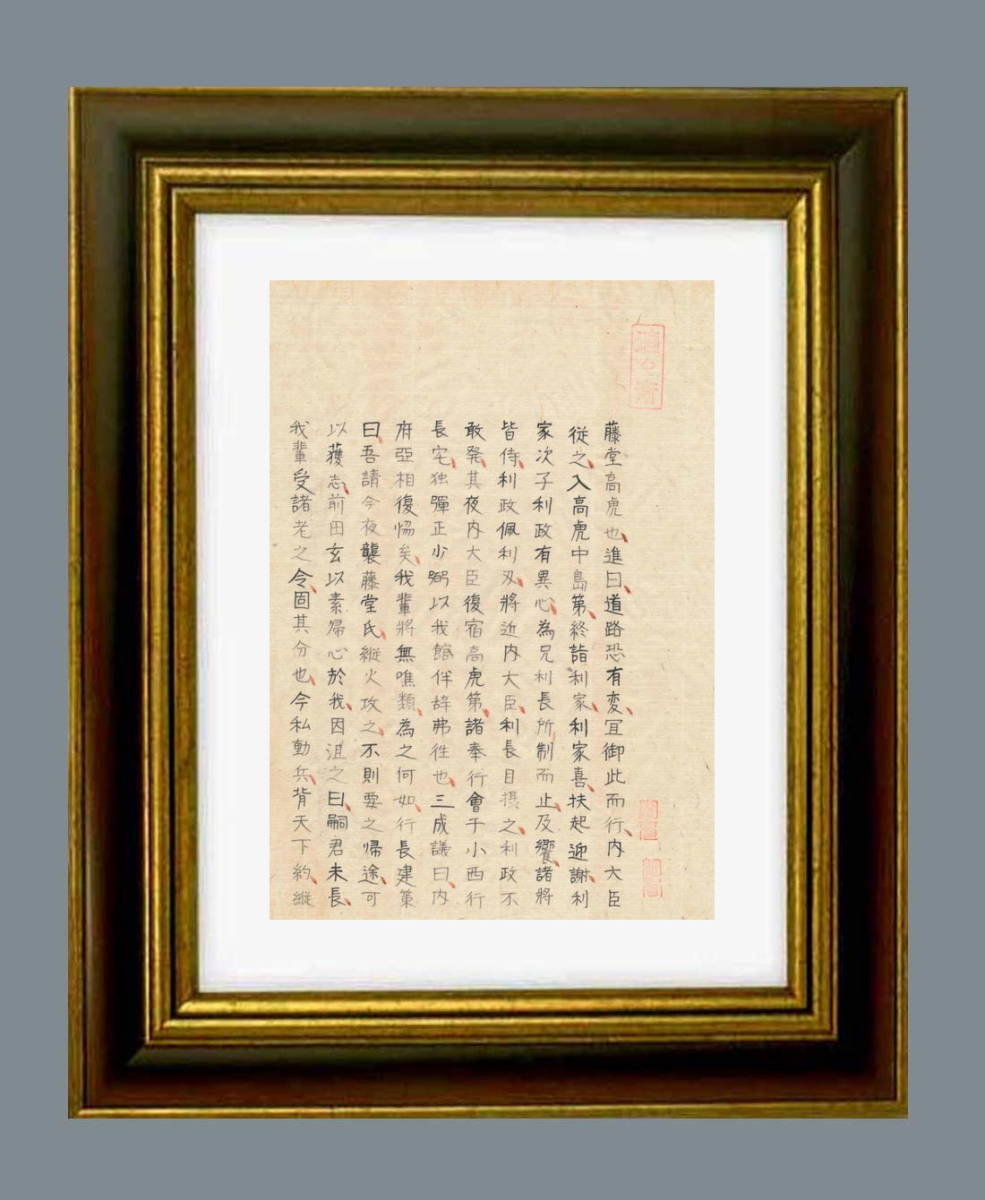 藤堂高虎也進曰道路恐有変宜御此而行内大臣
従之入高虎中島第終詣利家利家喜扶起迎謝利
家次子利政有異心為兄利長所制而止及饗諸將
皆侍利政佩利刃將近内大臣利長目摂之利政不
敢発其夜内大臣復宿高虎第諸奉行會于小西行
長宅独弾正少弼以我館伴辞弗往也三成議曰内
府亞相復惕矣我輩將無噍類為之何如行長建策
曰吾請今夜襲藤堂氏縦火攻之不則要之帰途可
以獲志前田玄以素帰心於我因沮之曰嗣君未長
我輩受諸老之令固其分也今私動兵背天下約縦